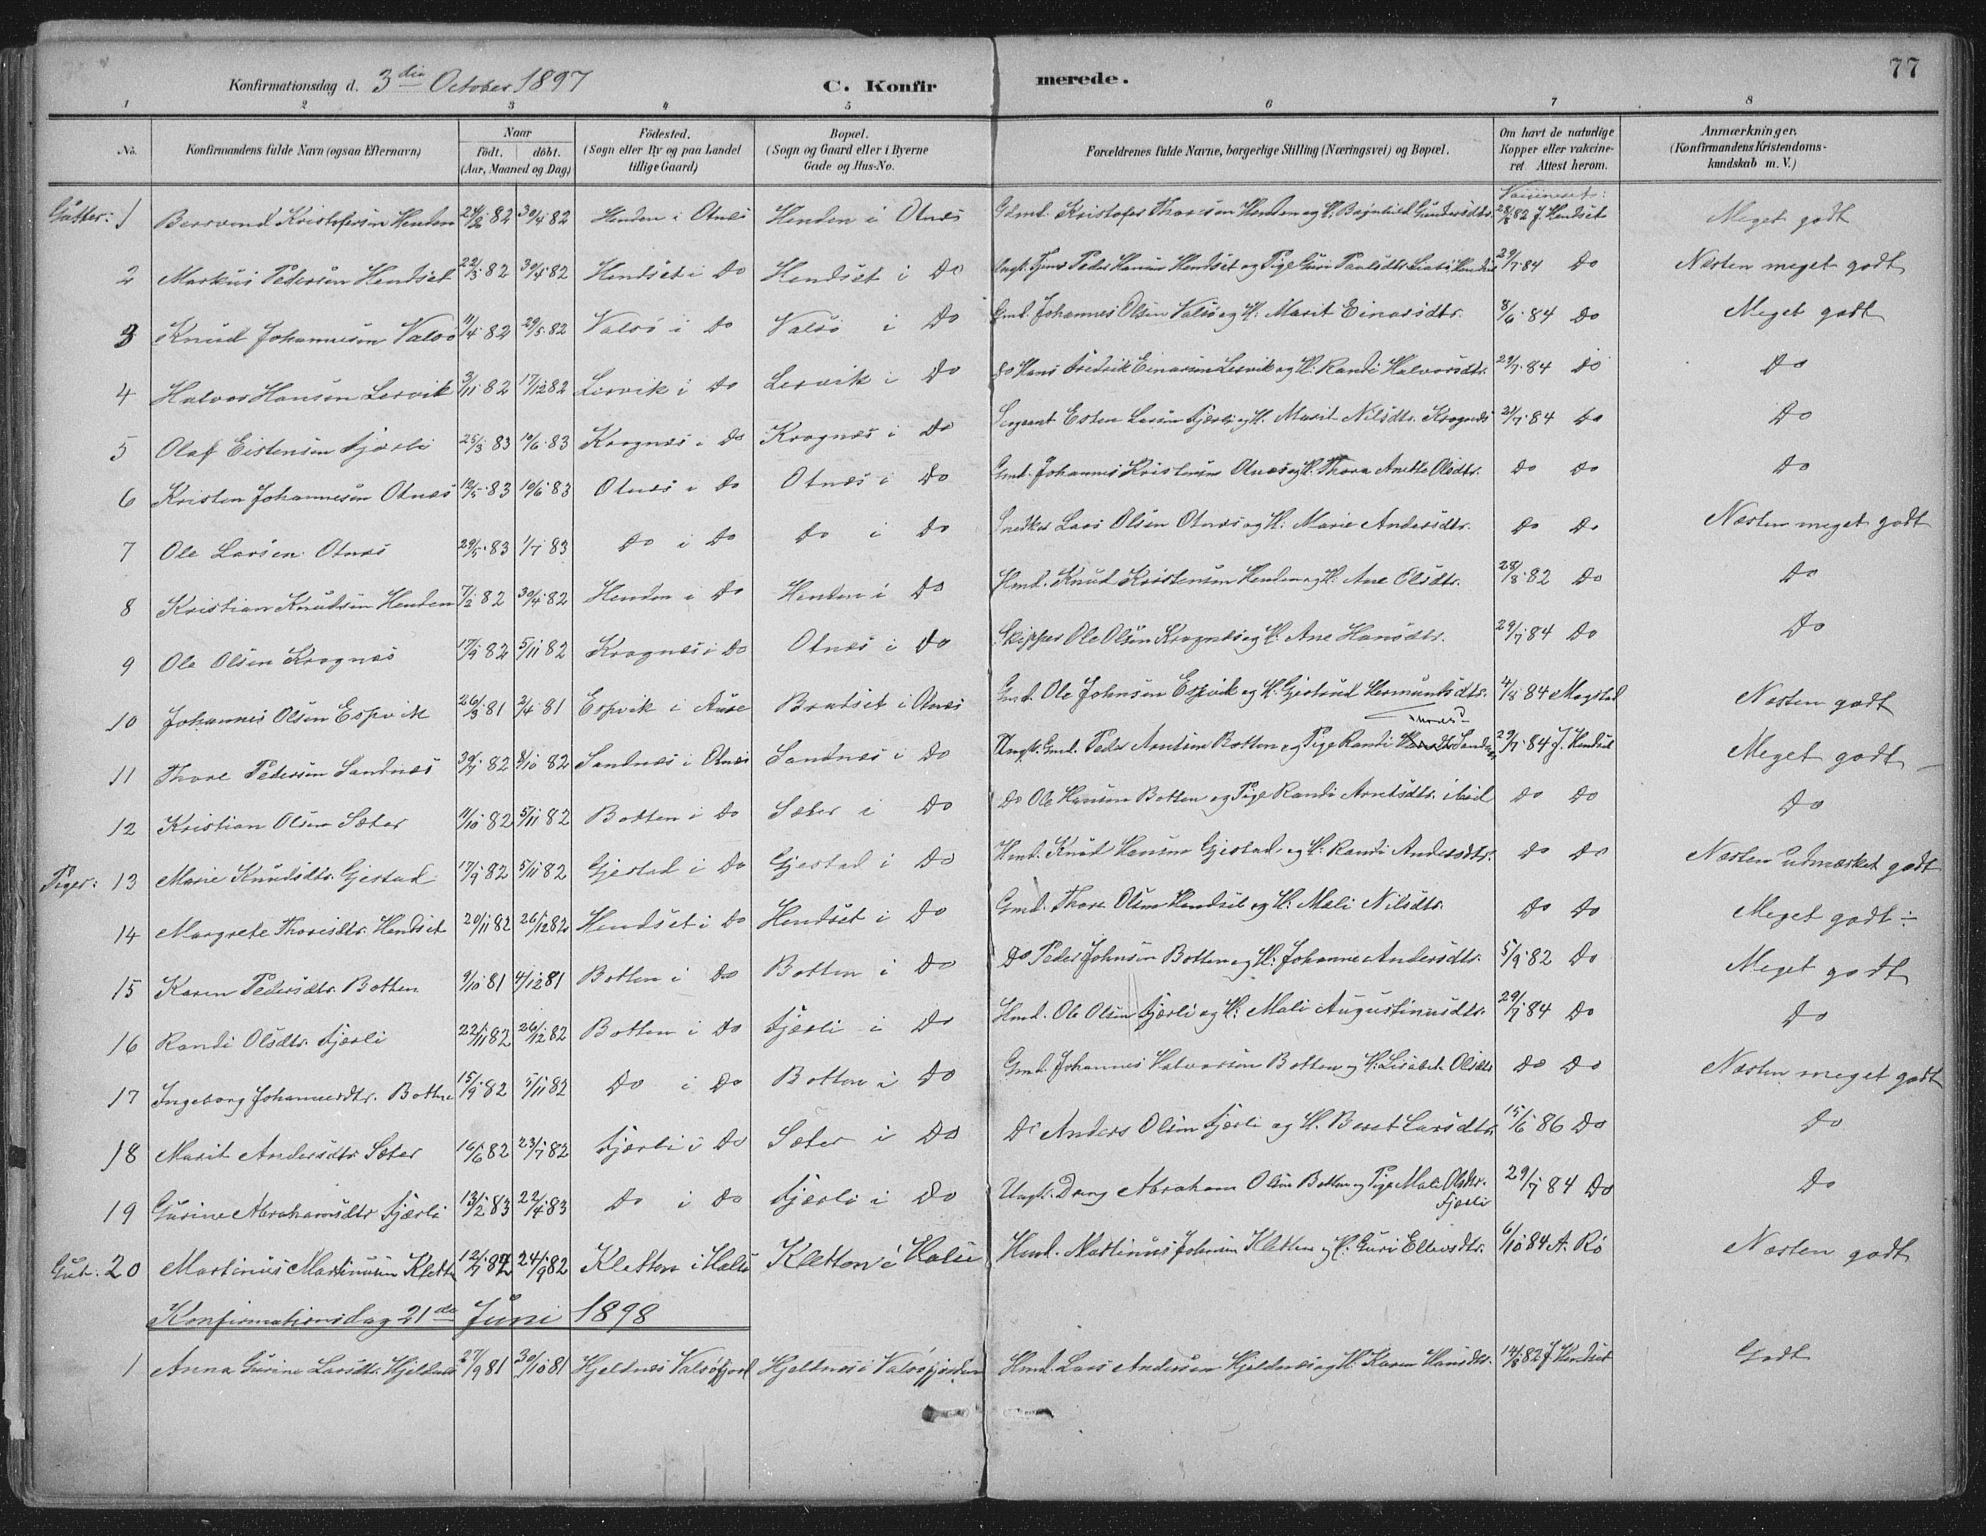 77
Konfirmationsdag d. 3die October 1897 C. Konfirmerede.
1 2 3 4 5 6 7 8
No. Konfirmandens fulde Navn (ogsaa Efternavn) Naar født. døbt. (Aar, Maaned og Dag) Födested. (Sogn eller By og paa Landet tillige Gaard) Bopæl. (Sogn og Gaard eller i Byerne Gade og Hus-No. Forældrenes fulde Navne, borgerlige Stilling (Næringsvei) og Bopæl. Om havt de naturlige Kopper eller vakcineret. Attest herom. Anmærkninger. (Konfirmandens Kristendomskundskab m. V.)
Gutter: 1 Kristofersen Henden 30/4 82 Henden i Otnes Henden i Otnes Gdmd. Kristofer Thoresen Henden og H. Gundersdtr. 28/8 82 J. Hendset Meget godt
2 Markus Pedersen Hendset 22/3 82 30/4 82 Hendset i Do Hendset i Do Peder Hansen Hendset og Pige Guri Paulsdtr. 29/7 84 Do Næsten meget godt
3 Knud Johannesen Valsö 11/4 82 29/5 82 Valsö i Do Valsö i Do Gmd. Johannes Olsen Valsö og H. Marit Einarsdtr. 8/6 84 Do Meget godt
4 Halvor Hansen Lervik 3/11 82 17/12 82 Lervik i Do Lervik i Do Do Hans Fredrik Einarsen Lervik og H. Randi Halvorsdtr. 29/7 84 Do Do
5 Olaf Eistensen Fjærli 25/3 83 10/6 83 Krognes i Do Krognes i Do Sergeant Esten Larsen Fjærli og H. Marit Nilsdtr. Krognes 29/7 84 Do Do
6 Kristen Johannesen Otnes 12/5 83 10/6 83 Otnes i Do Otnes i Do Gmd. Johannes Kristensen Otnes og H. Thora Anette Olsdtr. Do Do Do
7 Ole Larsen Otnes 29/5 83 1/7 83 Do i Do Do i Do Snedker Lars Olsen Otnes og H. Marie Andersdtr. Do Do Næsten meget godt
8 Kristian Knudsen Henden 7/2 82 30/4 82 Henden i Do Henden i Do Hmd. Knud Kristensen Henden og H. Ane Olsdtr. 28/8 82 Do Do
9 Ole Olsen Krognes 17/9 82 5/11 82 Krognes i Do Otnes i Do Skipper Ole Olsen Krognes og H. Ane Hansdtr. 29/7 84 Do Do
10 Johannes Olsen Espvik 26/3 81 2/4 81 Espvik i Aure Bradset i Otnes Gmd. Ole Johnsen Espvik og H. Gjertrud Hermundsdtr. 4/8 84 Magstad Næsten godt
11 Thore Pedersen Sandnes 30/7 82 8/10 82 Sandnes i Otnes Sandnes i Do Ungk. Gmd. Peder Arntsen Botten og Pige Randi Thores- Sandnes 29/7 84 J. Hendset Meget godt –
12 Kristian Olsen Sæter 11/10 82 5/11 82 Botten i Do Sæter i Do Do Ole Hansen Botten og Pige Randi Arntsdtr. ibid Do Do Do
Piger: 13 Marie Knudsdtr. Gjestad 17/9 82 5/11 82 Gjestad i Do Gjestad i Do Hmd. Knud Hansen Gjestad og H. Randi Andersdtr. Do Do Næsten udmærket godt
14 Margrete Thoresdtr. Hendset 20/11 82 26/12 82 Hendset i Do Hendset i Do Gmd. Thore Olsen Hendset og H. Mali Nilsdtr. Do Do Meget godt ÷
15 Karen Pedersdtr. Botten 9/10 81 4/12 81 Botten i Do Botten i Do Do Peder Johnsen Botten og H. Johanne Andersdtr. 5/9 82 Do Meget godt
16 Randi Olsdtr. Fjærli 22/11 82 26/12 82 Botten i Do Fjærli i Do Hmd. Ole Olsen Fjærli og H. Mali Augustinusdtr. 29/7 84 Do Do
17 Ingeborg Johannesdtr. Botten 15/9 82 5/11 82 Do i Do Botten i Do Gmd. Johannes Halvorsen Botten og H. Lisabet Olsdtr. Do Do Næsten meget godt
18 Marit Andersdtr. Sæter 16/6 82 23/7 82 Fjærli i Do Sæter i Do Do Anders Olsen Fjærli og H. Beret Larsdtr. 15/6 86 Do Do
19 Gurine Abrahamsdtr. Fjærli 13/2 83 22/4 83 Do i Do Fjærli i Do Ungk. Dreng Abraham Olsen Botten og Pige Mali Olsdtr. Fjærli 29/7 84 Do Do
Gut. 20 Martinus Martinusen Kletten 12/7 82 24/9 82 Kletten i Halse Kletten i Halse Hmd. Martinus Johnsen Kletten og H. Guri Ellevsdtr. 6/10 84 A. Rö Næsten godt
Konfirmationsdag 21de Juni 1898
1 Anna Gurine Larsdtr. Hjeldnes 27/9 81 30/10 81 Hjeldnes Valsöfjord Hjeldnes i Valsöfjorden Hmd. Lars Andersen Hjeldnes og H. Karen Hansdtr. 14/9 82 J. Hendset Godt